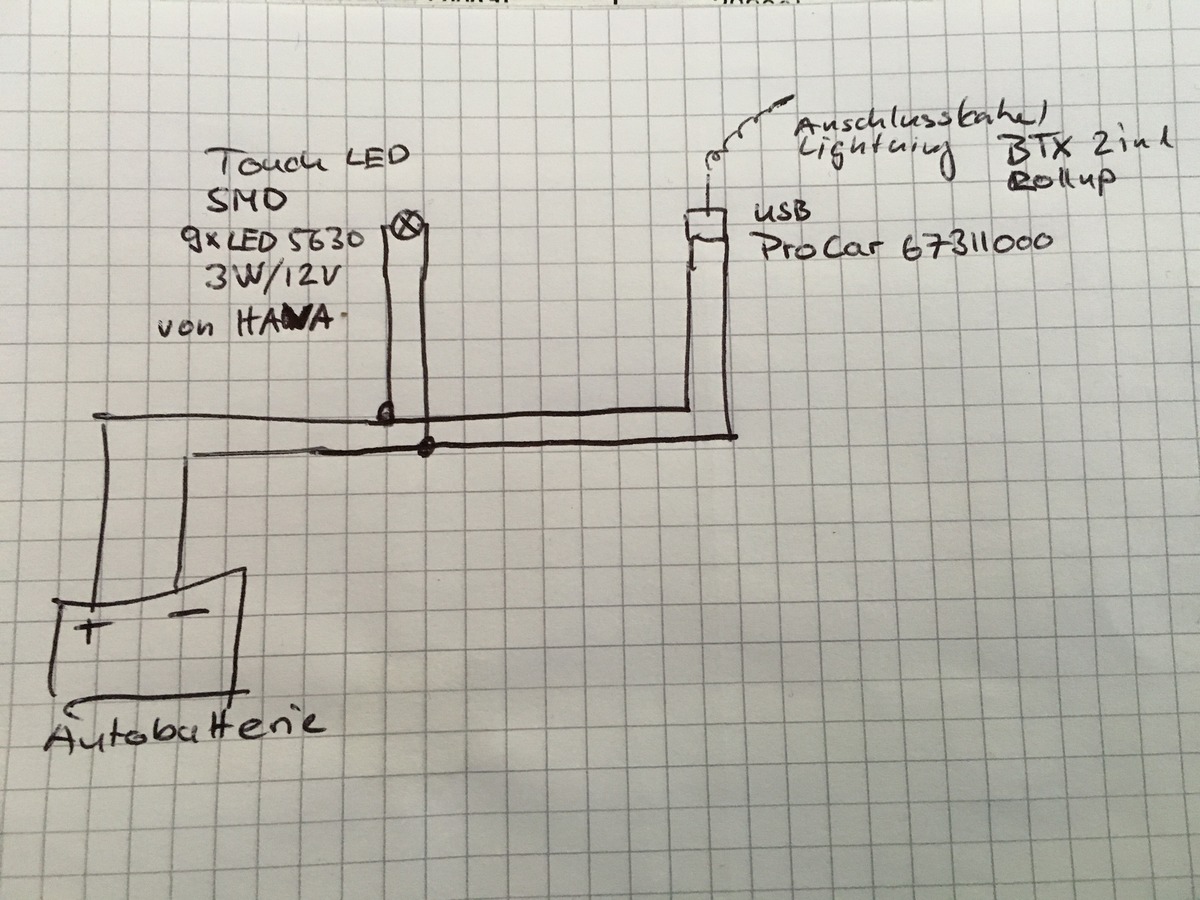 Touch LED
SMD
9xLED 5630
3W/12V
von
Anschlusskabel
Lightning BTX 2in1
Rollup
USB
ProCar 67311000
+ −
Autobatterie